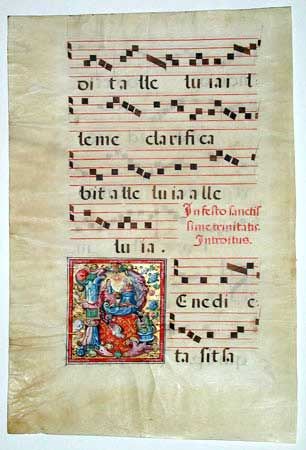 di t a lle lu ia i l
le me clarifica
bit a lle lu ia a lle
In festo sanctis
sime trinitatis.
Introitus.
lu ia.
B Enedi c
ta sit sa